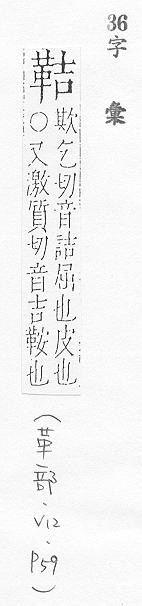 36
字彙
鞊
欺乞切音詰屈也皮也
○又激質切音吉鞍也
(革部·V12·P59)